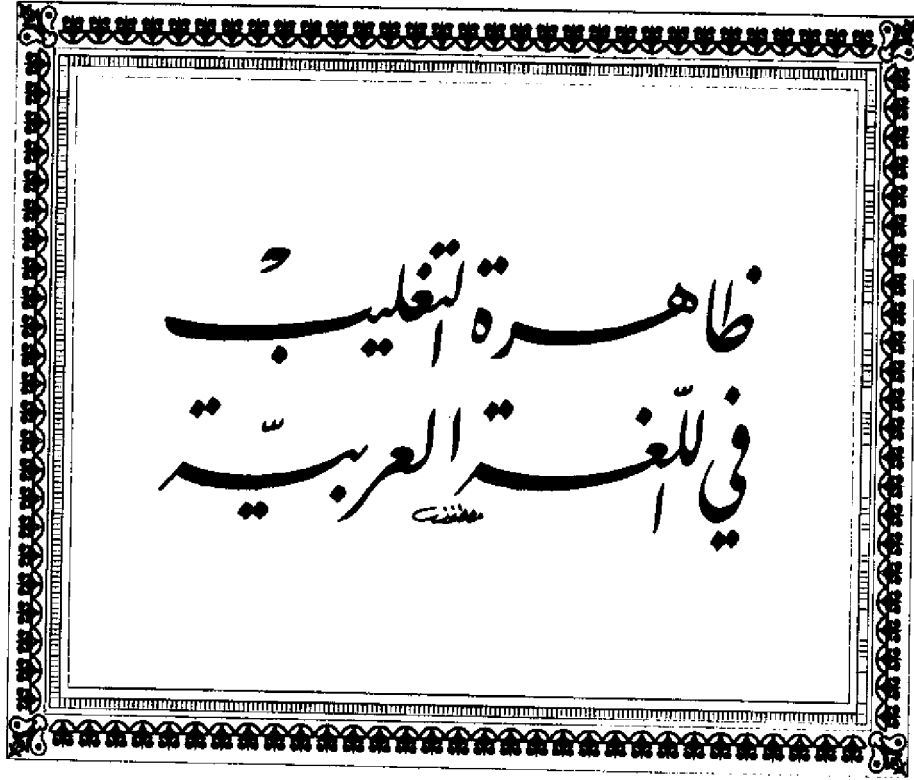 ظاهرة التغليب
في اللّغة العربيّة